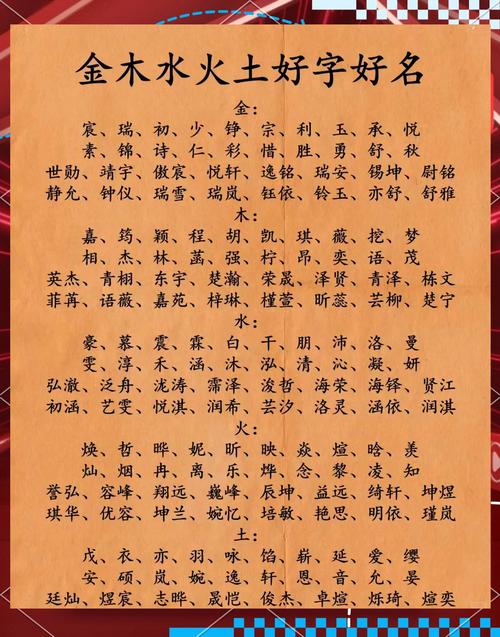 金木水火土好字好名
金：
宸、瑞、初、少、铮、宗、利、玉、承、悦
素、锦、诗、仁、彩、惜、胜、勇、舒、秋
世勋、靖宇、傲宸、悦轩、逸铭、瑞安、锡坤、尉铭
静允、钟仪、瑞雪、瑞岚、钰依、铃玉、亦舒、舒雅
木：
嘉、筠、颖、程、胡、凯、琪、薇、挖、梦
相、杰、林、菡、强、柠、昂、奕、语、茂
英杰、青栩、东宇、楚瀚、荣晟、泽贤、青泽、栋文
菲苒、语薇、嘉苑、梓琳、槿萱、昕蕊、芸柳、楚宁
水：
豪、慕、震、霖、白、干、朋、沛、洛、曼
雯、淳、禾、涵、沐、泓、清、沁、凝、妍
弘澈、泛舟、泷涛、霈泽、浚哲、海荣、海铎、贤江
初涵、艺雯、悦淇、润希、芸汐、洛灵、涵依、润淇
火：
焕、哲、晔、妮、昕、映、焱、煊、晗、羡
灿、烟、冉、离、乐、烨、念、黎、凌、知
誉弘、容峰、翔远、巍峰、辰坤、益远、绮轩、坤煜
琪华、优容、坤兰、婉忆、培敏、艳思、明依、瑾岚
土：
戊、衣、亦、羽、咏、馅、崭、延、爱、缨
安、硕、岚、婉、逸、轩、恩、音、允、晏
廷灿、煜宸、志晔、晟恺、俊杰、卓煊、烁琦、煊奕